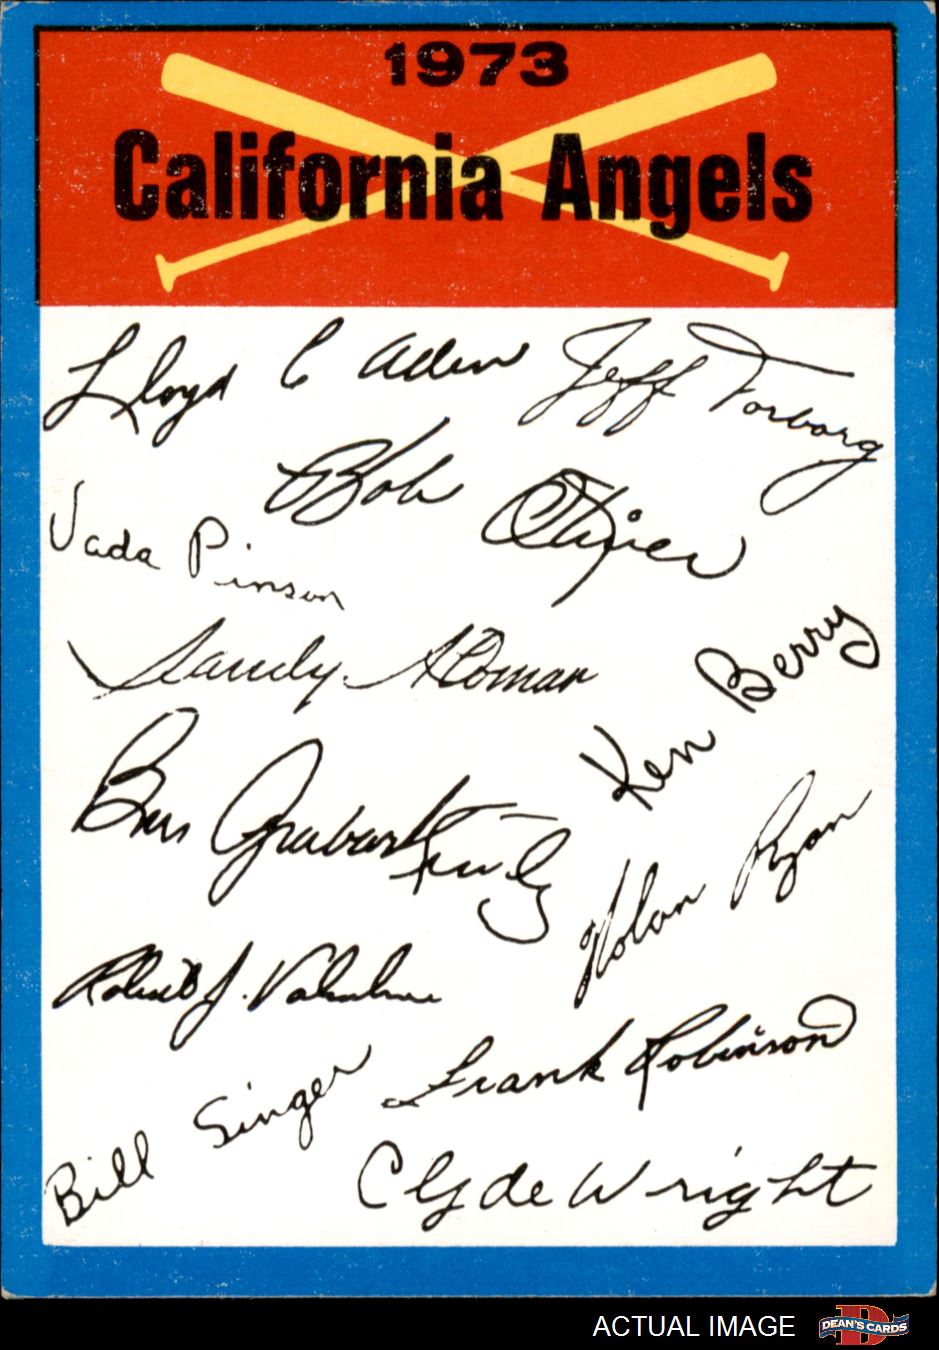 1973
California Angels
Lloyd C Allen
Jeff Torborg
Bob Oliver
Vada Pinson
Sandy Alomar
Ken Berry
Ben Grabarkewitz
Nolan Ryan
Robert J. Valentine
Frank Robinson
Bill Singer
Clyde Wright
ACTUAL IMAGE
DEAN'S CARDS